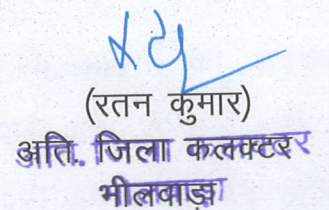 (रतन कुमार)
अति. जिला कलक्टर
भीलवाड़ा